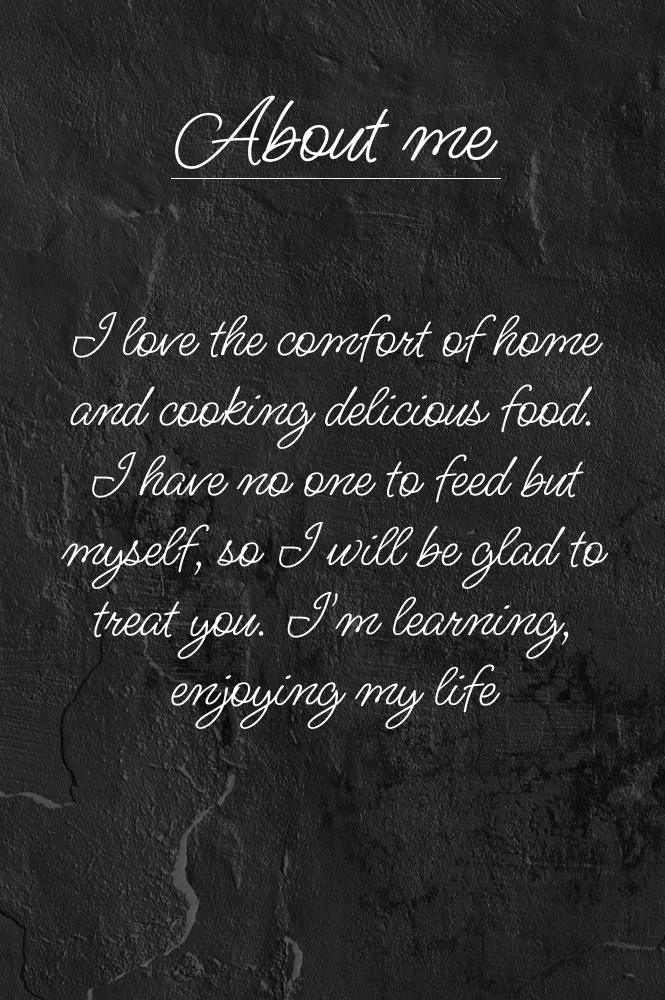 About me
I love the comfort of home
and cooking delicious food.
I have no one to feed but
myself, so I will be glad to
treat you. I'm learning,
enjoying my life